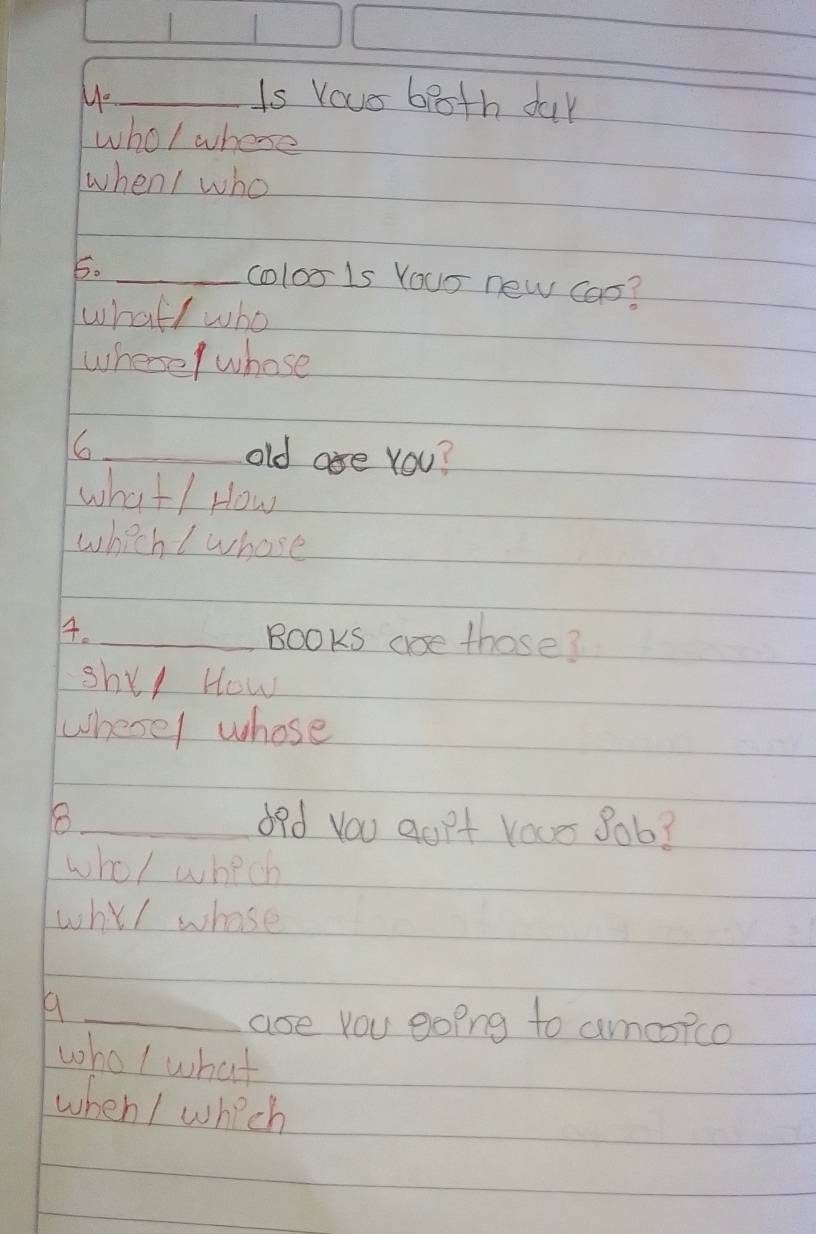 4. ______ Is Your birth day
who / where
when / who
5. ______ color Is Your new car?
what / who
where / whose
6 ______ old are You?
what / How
which / whose
7. ______ Books are those?
shy / How
where / whose
8 ______ did You quit Your Job?
who / which
why / whose
9 ______ are you going to america
who / what
when / which